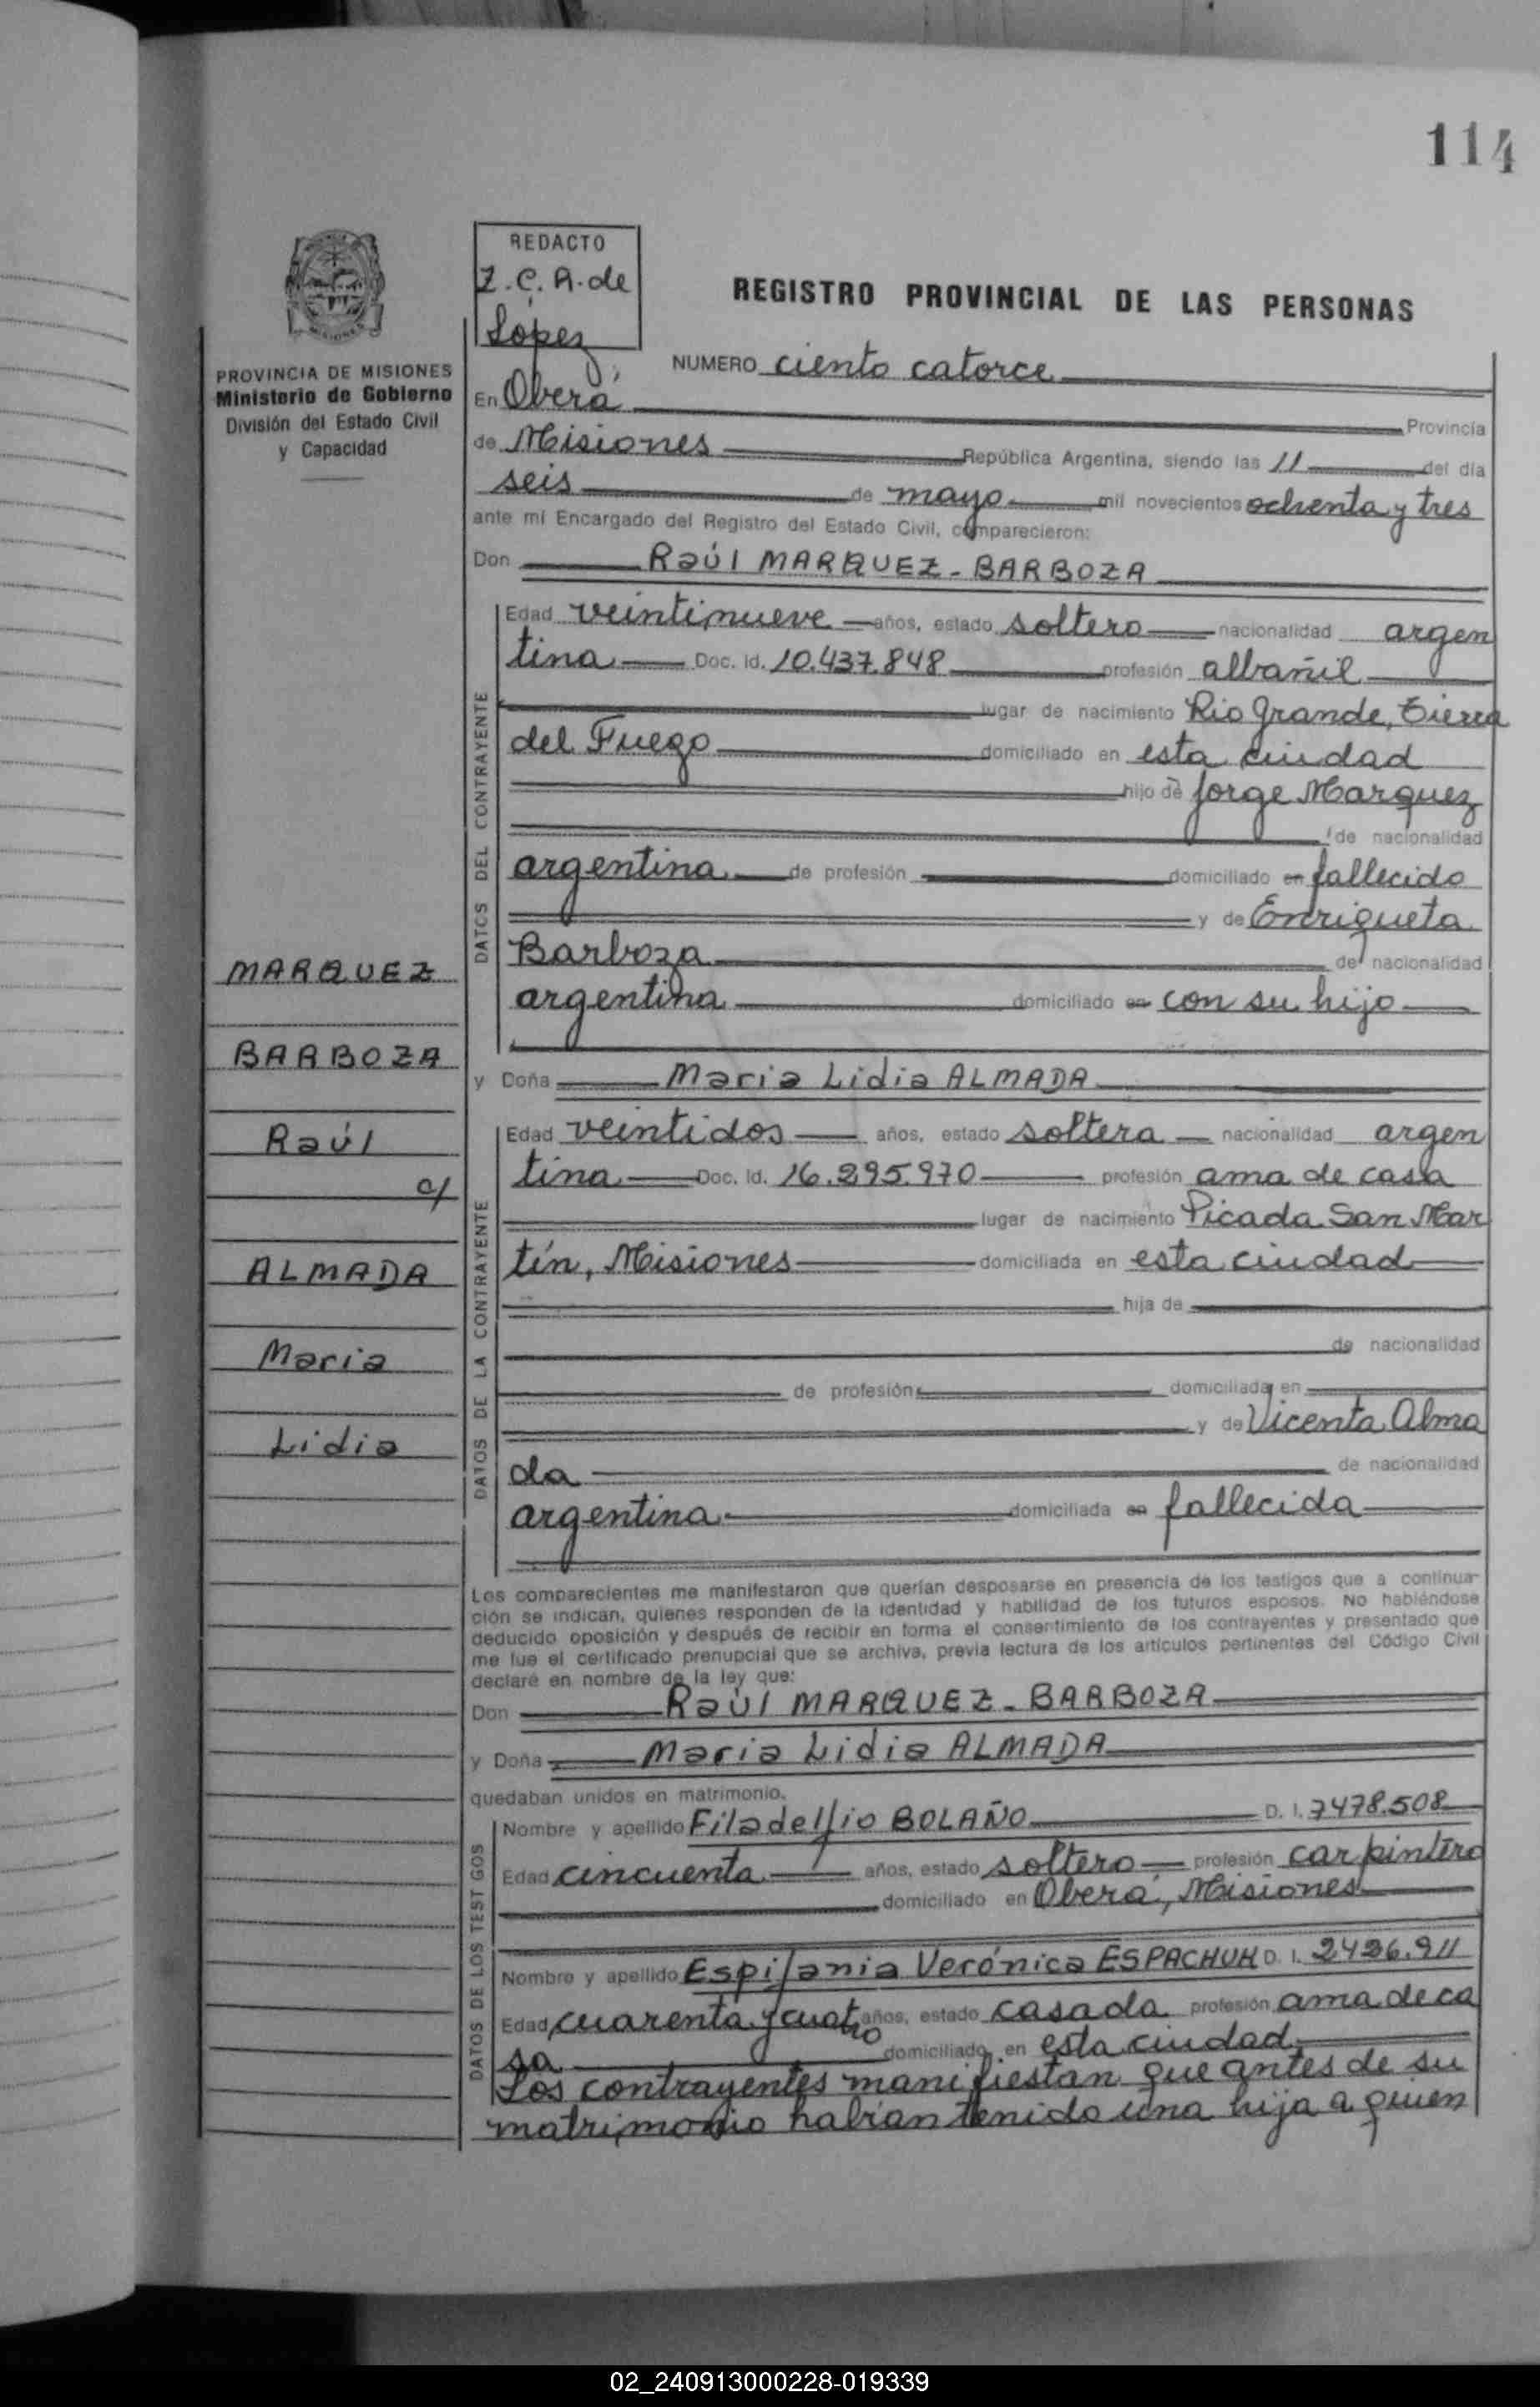 114
REDACTO
Z.C.A. de
Lopez
REGISTRO PROVINCIAL DE LAS PERSONAS
PROVINCIA DE MISIONES
Ministerio de Gobierno
División del Estado Civil
y Capacidad
NUMERO ciento catorce
En Oberá Provincia
de Misiones República Argentina, siendo las 11 del día
seis de mayo mil novecientos ochenta y tres
ante mí Encargado del Registro del Estado Civil, comparecieron:
Don Raúl MARQUEZ - BARBOZA
DATOS DEL CONTRAYENTE
Edad veintinueve años, estado soltero nacionalidad argen
tina Doc. Id. 10.437.848 profesión albañil
lugar de nacimiento Rio Grande, Tierra
del Fuego domiciliado en esta ciudad
hijo de Jorge Marquez
de nacionalidad
argentina de profesión domiciliado en fallecido
y de Enriqueta
Barboza de nacionalidad
argentina domiciliado en con su hijo
MARQUEZ
BARBOZA
Raúl
c/
ALMADA
Maria
Lidia
y Doña Maria Lidia ALMADA
DATOS DE LA CONTRAYENTE
Edad veintidos años, estado soltera nacionalidad argen
tina Doc. Id. 16.295.970 profesión ama de casa
lugar de nacimiento Picada San Mar
tín, Misiones domiciliada en esta ciudad
hija de
de nacionalidad
de profesión domiciliada en
y de Vicenta Alma
da de nacionalidad
argentina domiciliada en fallecida
Los comparecientes me manifestaron que querían desposarse en presencia de los testigos que a continua-
ción se indican, quienes responden de la identidad y habilidad de los futuros esposos. No habiéndose
deducido oposición y después de recibir en forma el consentimiento de los contrayentes y presentado que
me fue el certificado prenupcial que se archiva, previa lectura de los artículos pertinentes del Código Civil
declaré en nombre de la ley que:
Don Raúl MARQUEZ - BARBOZA
y Doña Maria Lidia ALMADA
quedaban unidos en matrimonio.
DATOS DE LOS TESTIGOS
Nombre y apellido Filadelfio BOLAÑO D. I. 7478.508
Edad cincuenta años, estado soltero profesión carpintero
domiciliado en Oberá, Misiones
Nombre y apellido Espifania Verónica ESPACHUK D. I. 2426.911
Edad cuarenta y cuatro años, estado casada profesión ama de ca
sa domiciliado en esta ciudad
Los contrayentes manifiestan que antes de su
matrimonio habían tenido una hija a quien
02_240913000228-019339